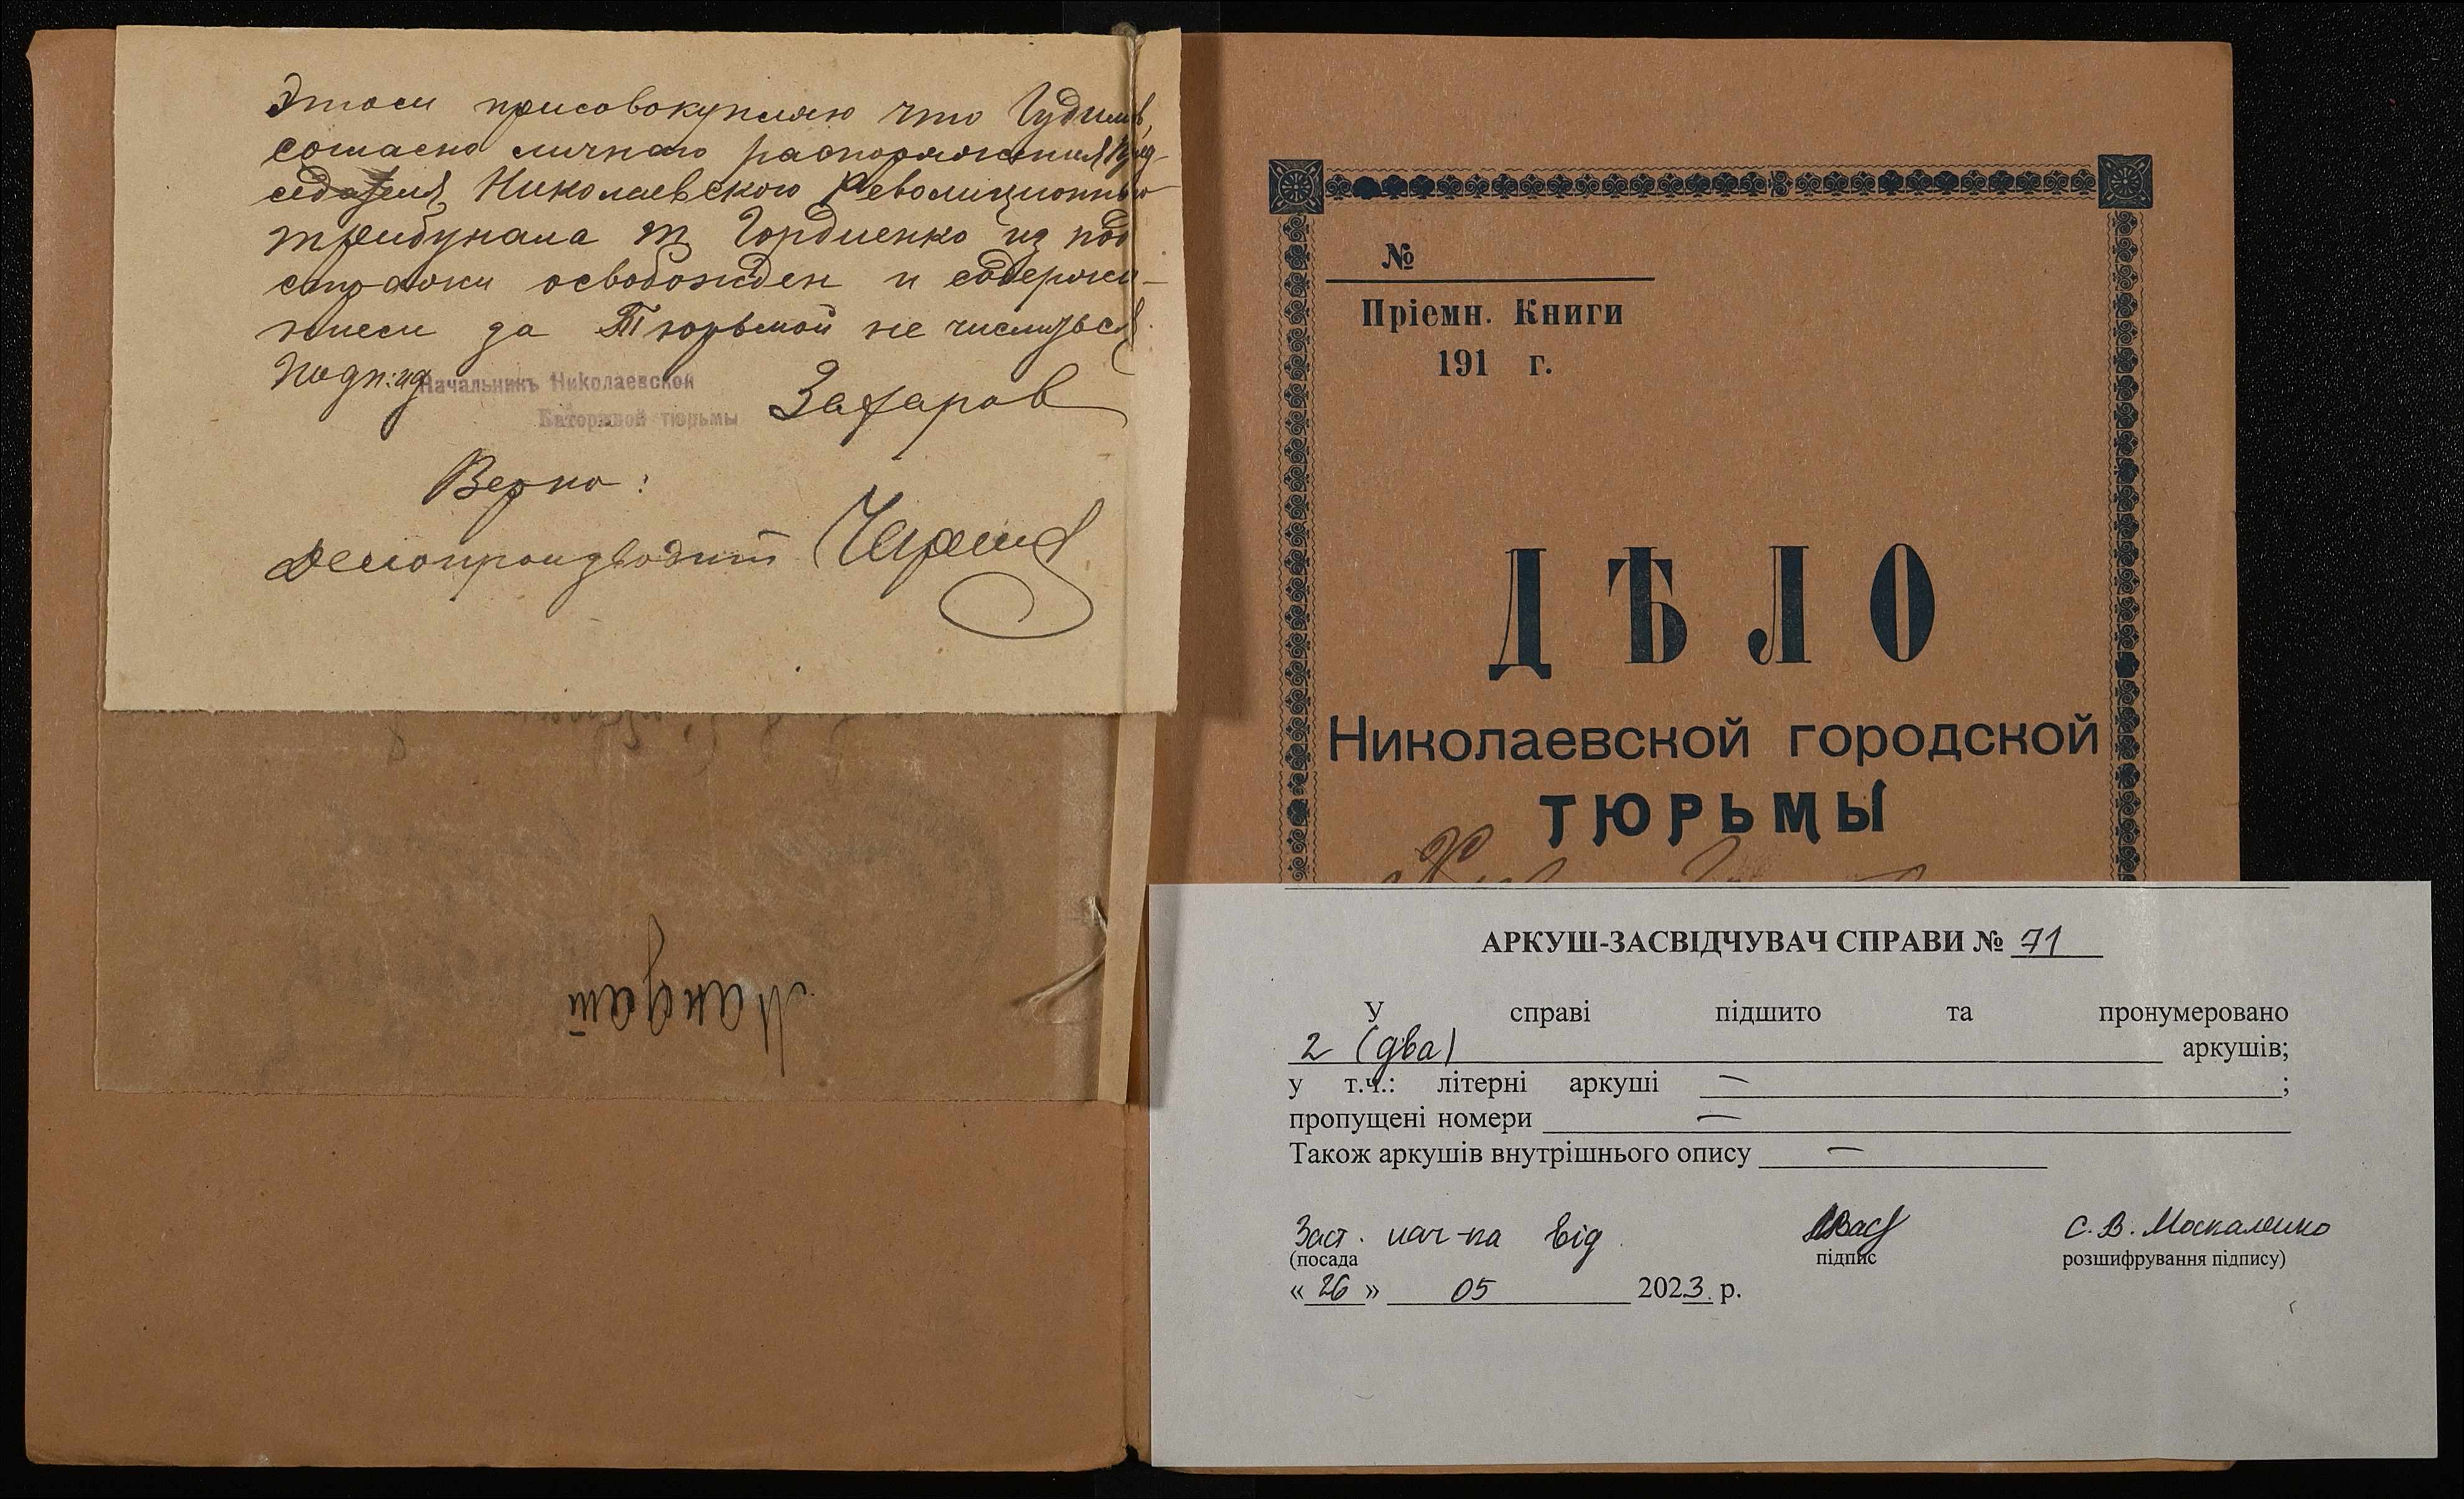 Этом присовокупляю что Гудим,
согласно личнаго распоряжения Пред-
седателя Николаевского Революционного
трибунала т Гордиенко из под
стражи освобожден и содержа-
нием за Тюрьмой не числиться.
Подп:
Начальникъ Николаевской
Каторжной тюрьмы
Захаров
Верно:
Делопроизводит
Мандат
№
Пріемн. Книги
191 г.
ДѢЛО
Николаевской городской
ТЮРЬМЫ
АРКУШ-ЗАСВІДЧУВАЧ СПРАВИ № 71
У справі підшито та пронумеровано
2 (два) аркушів;
у т.ч.: літерні аркуші — ;
пропущені номери —
Також аркушів внутрішнього опису —
Заст. нач-ка від. С. В. Москаленко
(посада підпис розшифрування підпису)
« 26 » 05 2023 р.